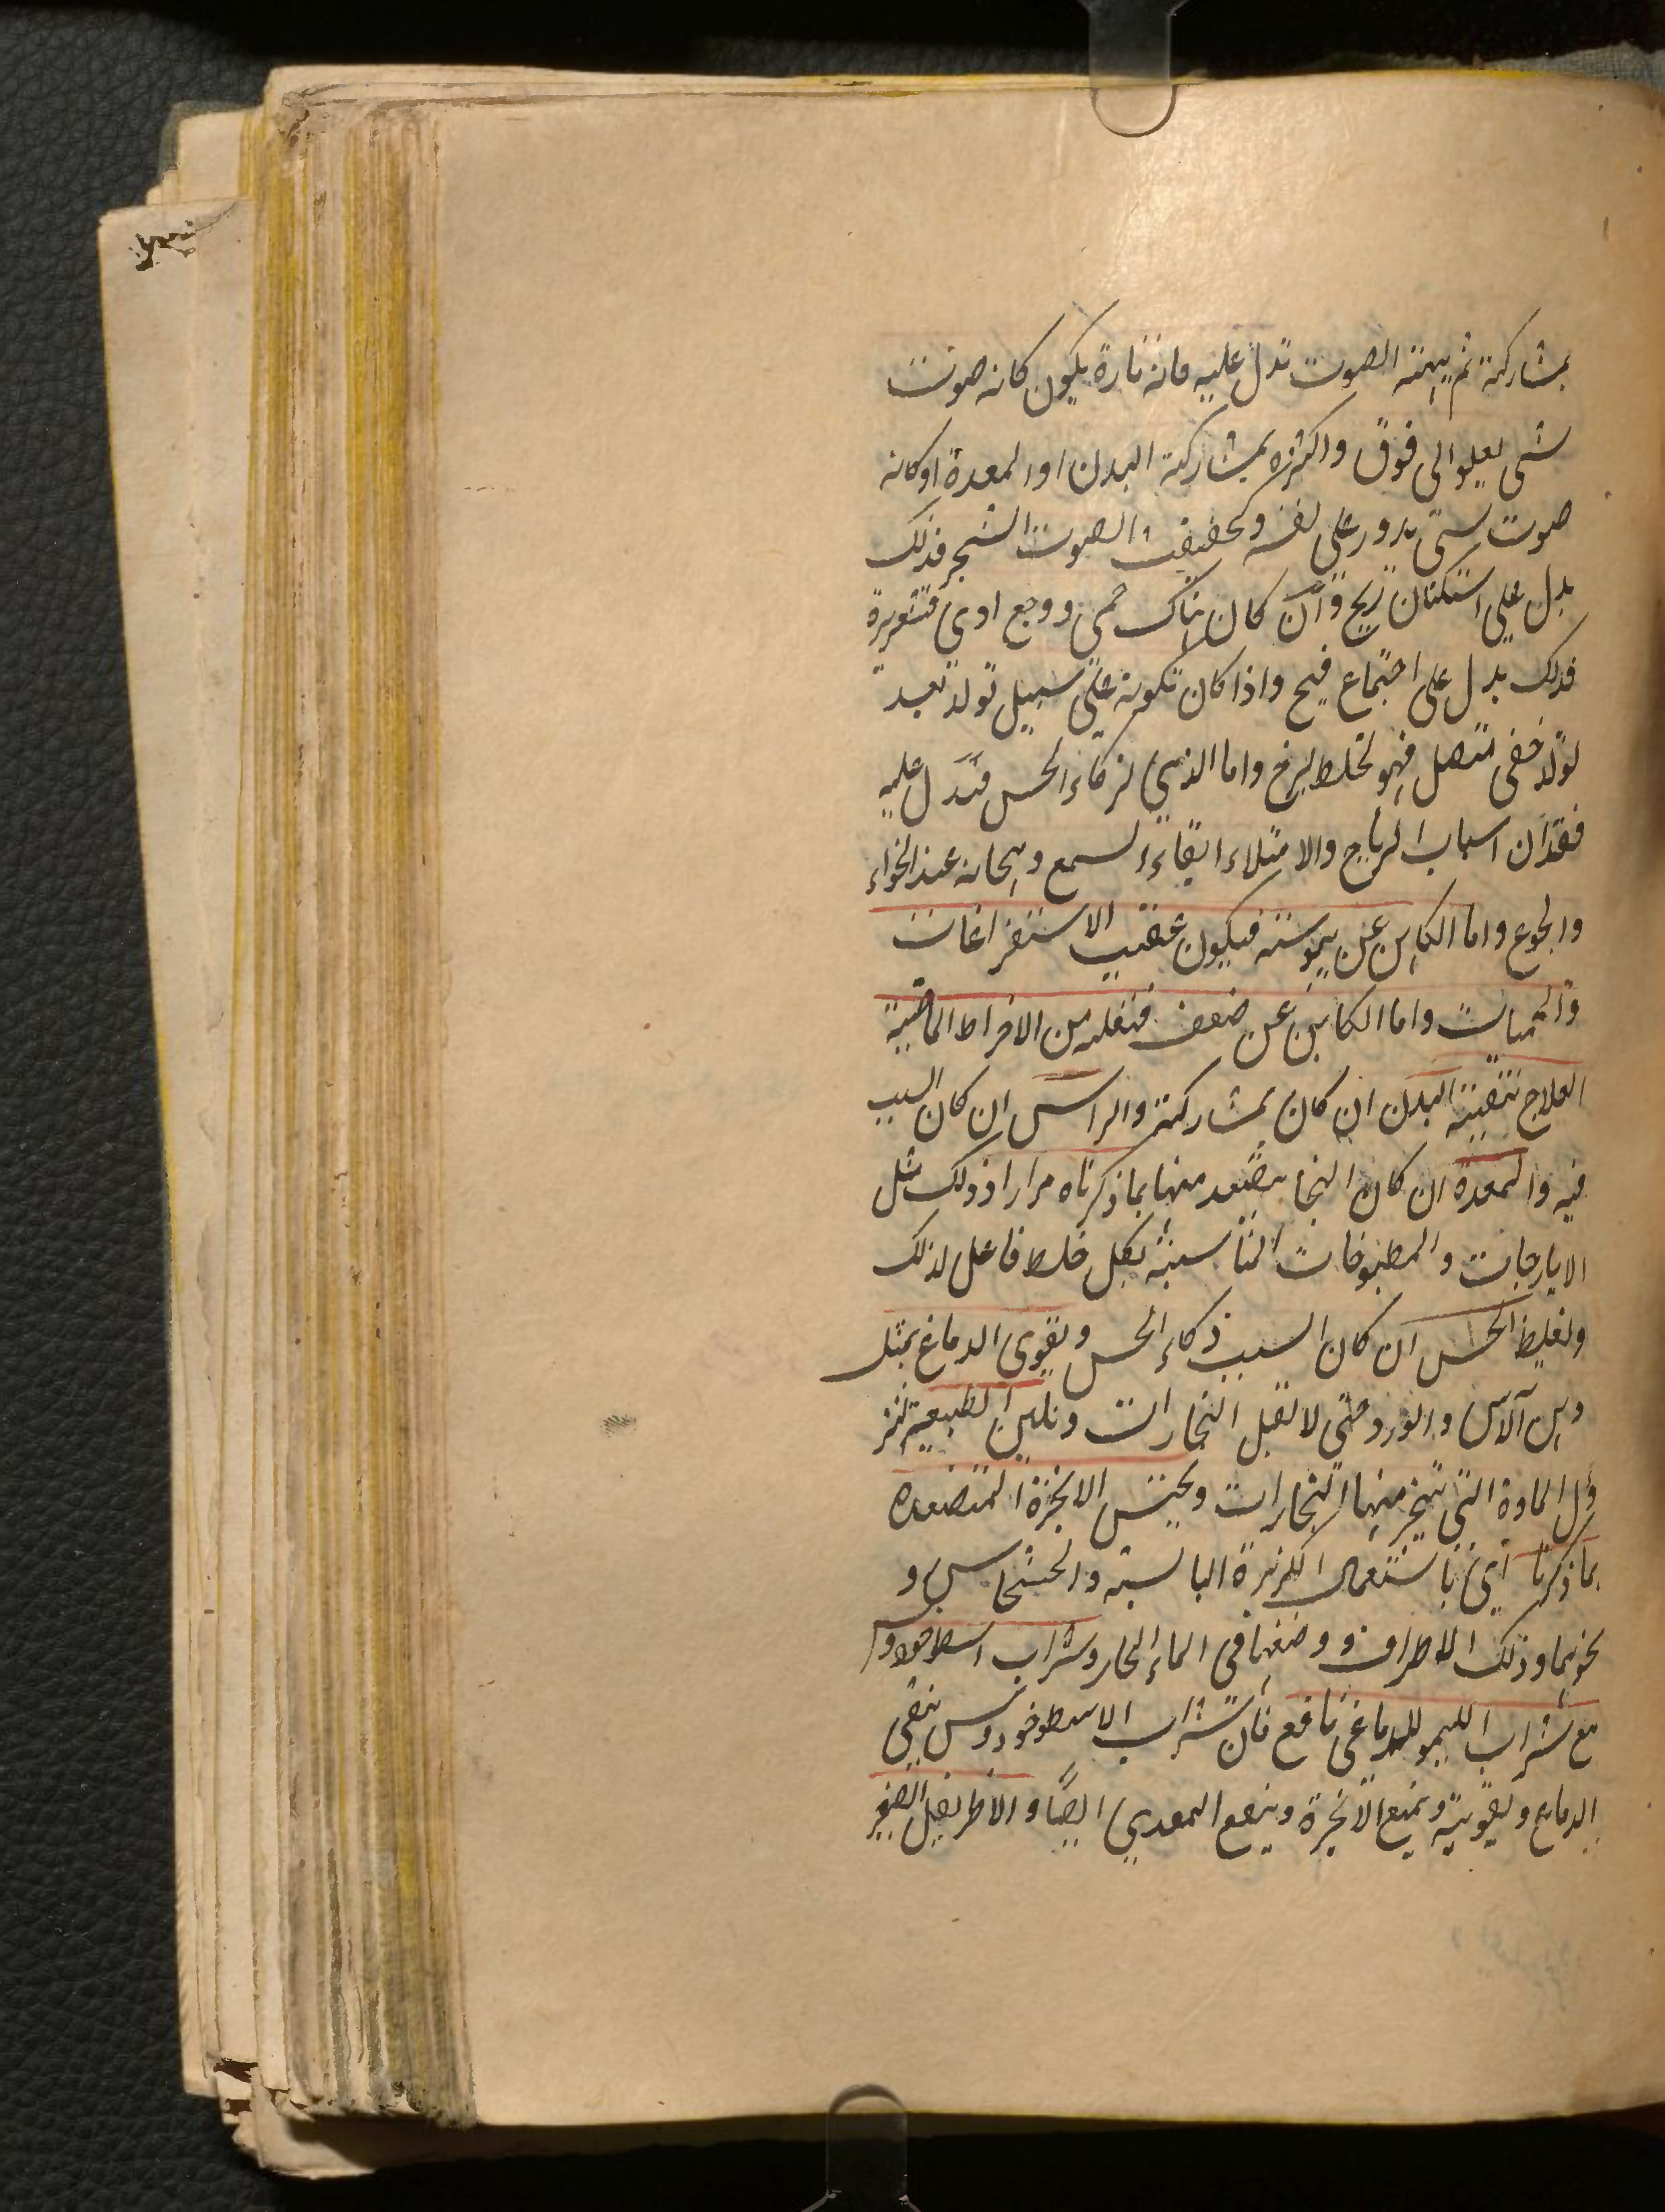 بمشاركة ثم هيئة الصوت تدل عليه فانه تارة يكون كانه صوت
شى يعلو الى فوق واكثره بمشاركة البدن او المعدة او كانه
صوت شى يدور على نفسه وكحفيف الصوت الشجر فذلك
يدل على استكنان ريح وان كان هناك حمى ووجع اوى قشعريرة
فذلك يدل على اجتماع قيح واذا كان تكونه على سبيل تولد بعد
تولد خفى متصل فهو لخلط لزج واما الذي لزكاء الحس فتدل عليه
فقدان اسباب الرياح والامتلاء ابقاء السمع وهيجانه عند الخواء
والجوع واما الكاين عن يبوسته فيكون عقيب الاستفراغات
والحميات واما الكاين عن ضعف فتعلمه من الافراط الماضية
العلاج تنقية البدن ان كان بمشاركته والراس ان كان السبب
فيه والمعدة ان كان البخار يصعد منها بما ذكرناه مرارا وذلك مثل
الايارجات والمطبوخات المناسبة بكل خلط فاعل لذلك
وتغليظ الحس ان كان السبب ذكاء الحس ويقوى الدماغ بمثل
دهن الآس والورد حتى لا تقبل البخارات وتليين الطبيعة لتز
ول المادة التى يتبخر منها البخارات ويحبس الابخرة المتصعدة
بما ذكرنا اى باستعمال الكزبرة اليابسة والخشخاس و
نحوهما وذلك الاطراف ووضعها فى الماء الحار وشراب اسطوخودوس
مع شراب الليمو للدماغى نافع فان شراب الاسطوخودوس ينقى
الدماغ ويقويه ويمنع الابخرة وينفع المعدي ايضًا والاطريفل الصغير